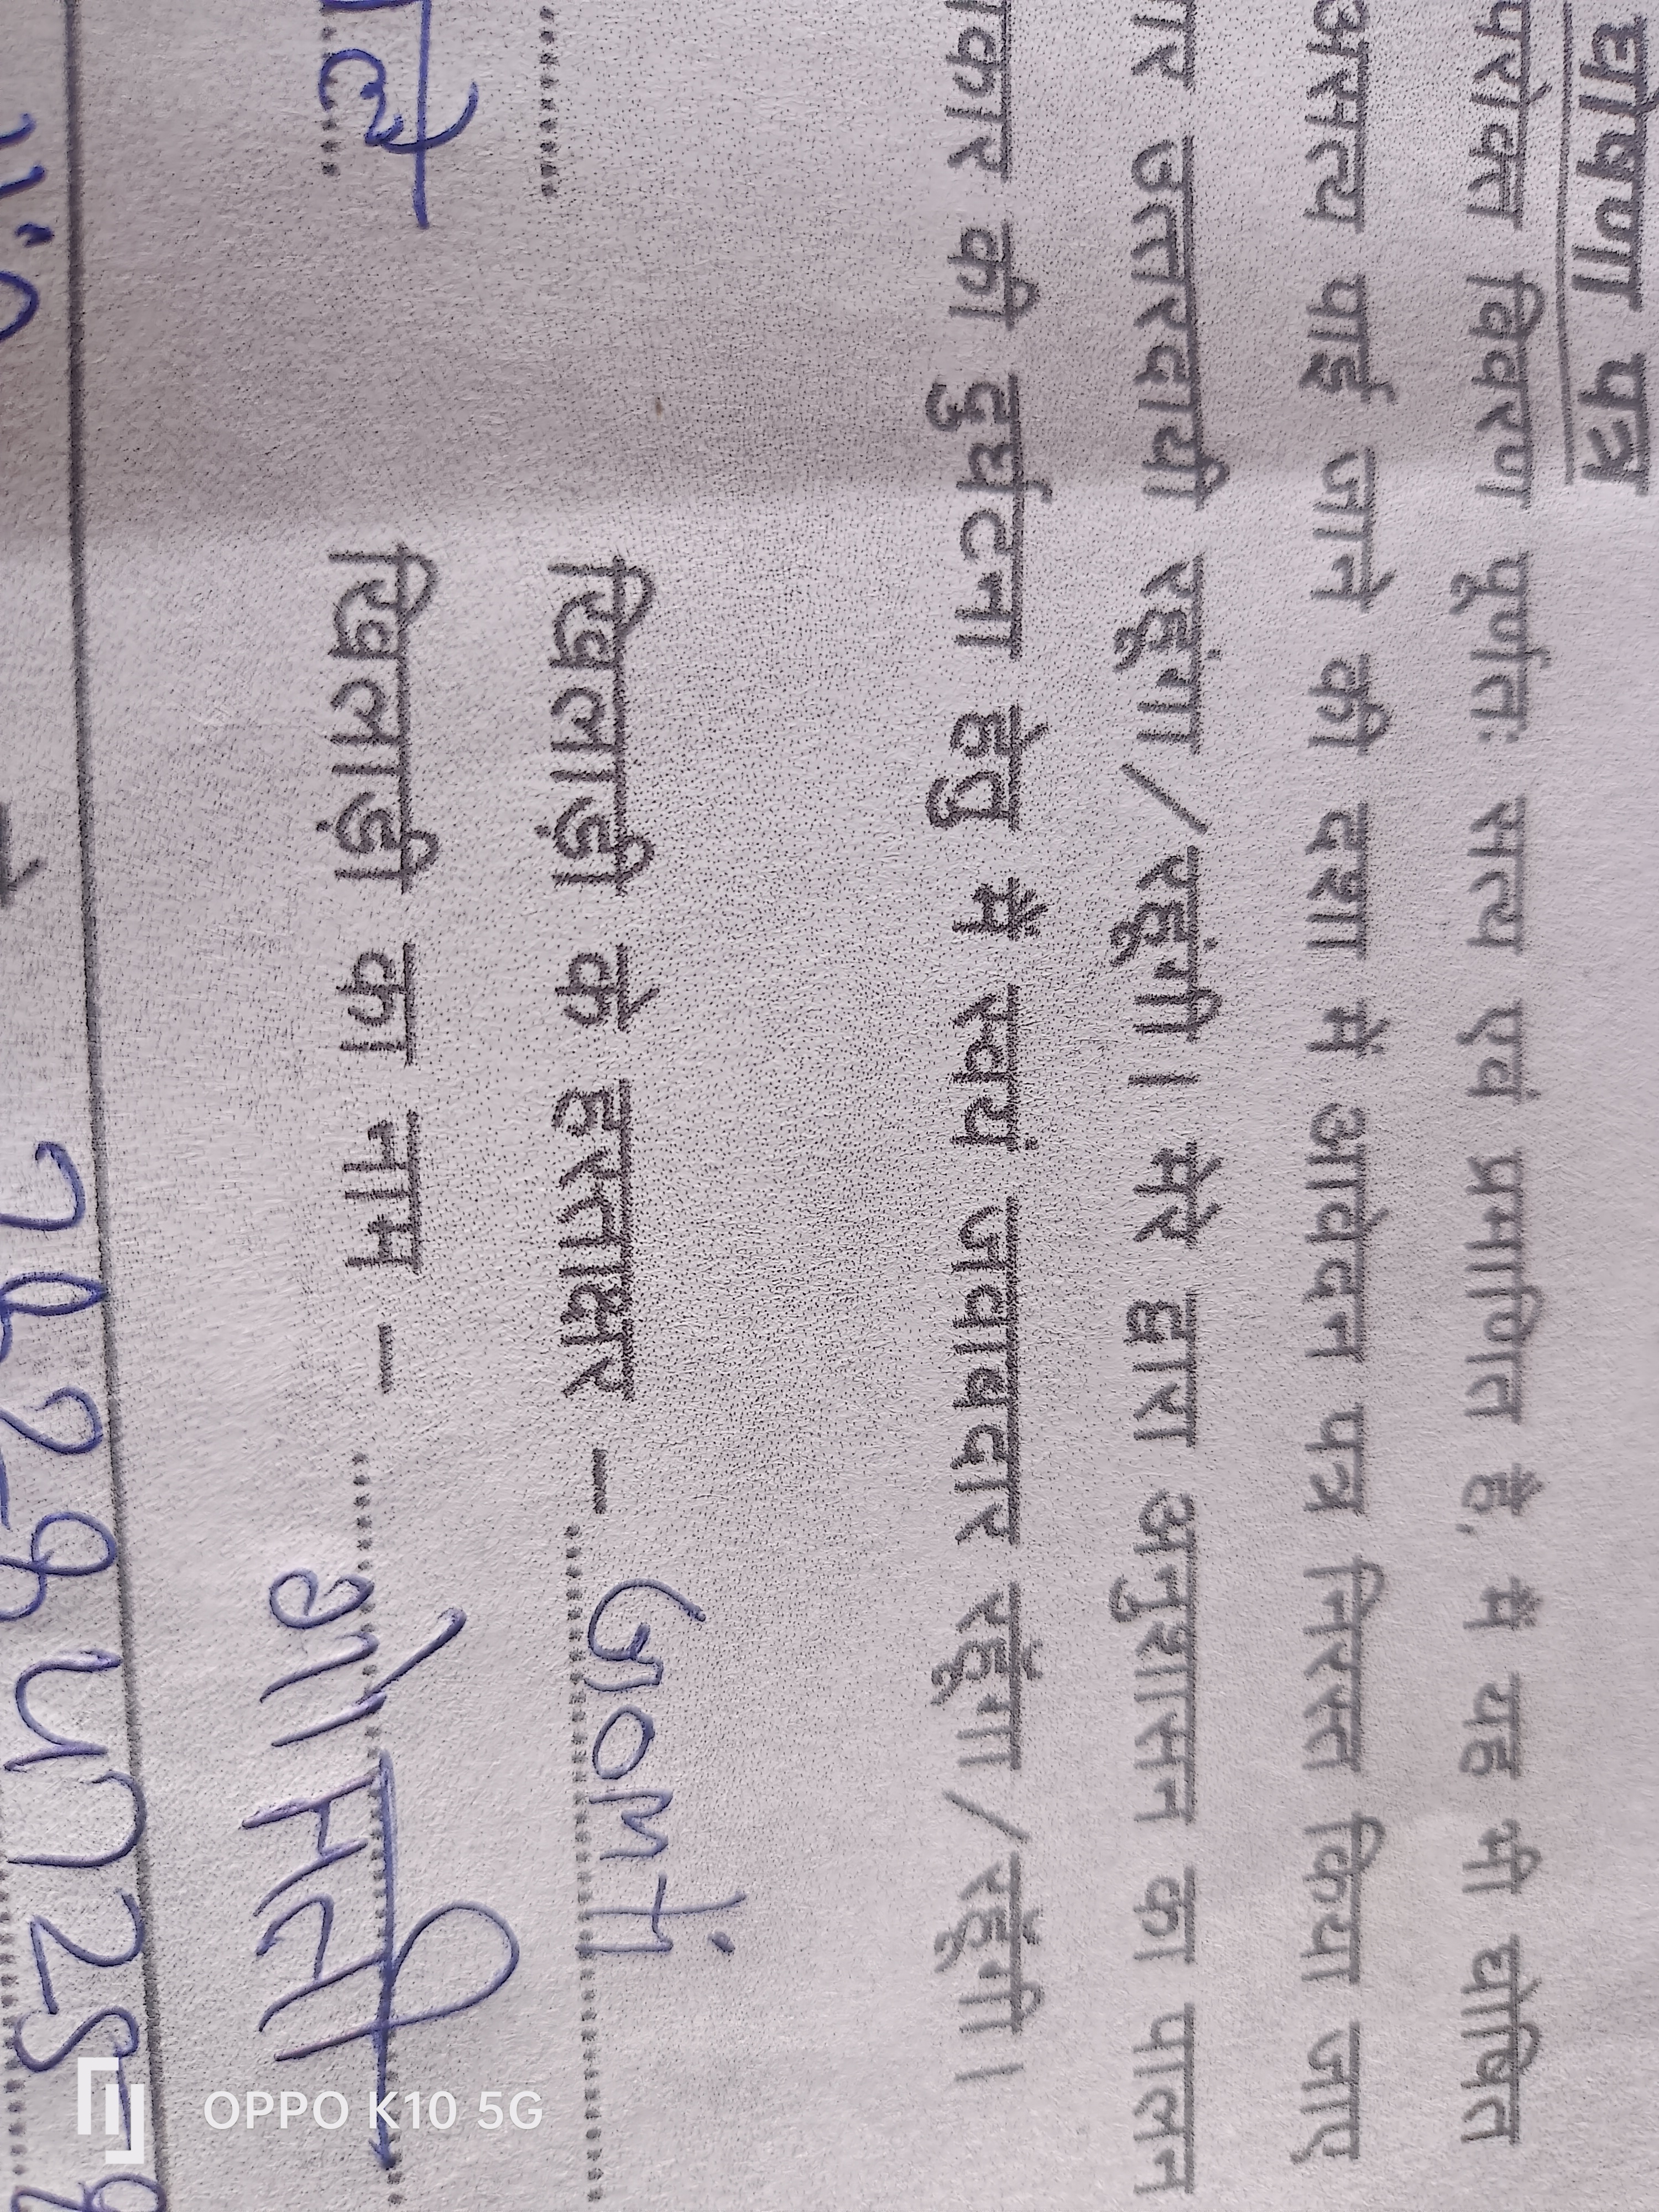 घोषणा पत्र
परोक्त विवरण पूर्णतः सत्य एवं प्रमाणित है, मैं यह भी घोषित
असत्य पाई जाने की दशा में आवेदन पत्र निरस्त किया जाए
उत्तरदायी रहूंगा/रहूंगी। मेरे द्वारा अनुशासन का पालन
की दुर्घटना हेतु मैं स्वयं जवाबदार रहूंगा/रहूंगी।
खिलाड़ी के हस्ताक्षर – Gomti
खिलाड़ी का नाम – गोमती
OPPO K10 5G